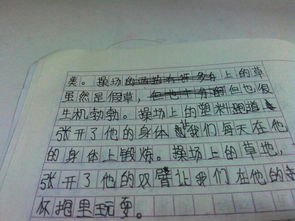 类。操场的上的草
虽然是假草,但也
生机勃勃。操场上的塑料跑道
张开了他的身体 我们每天在他
的身体上锻炼。操场上的草地,
张开了他的双臂让我们在他的
怀抱里玩耍。